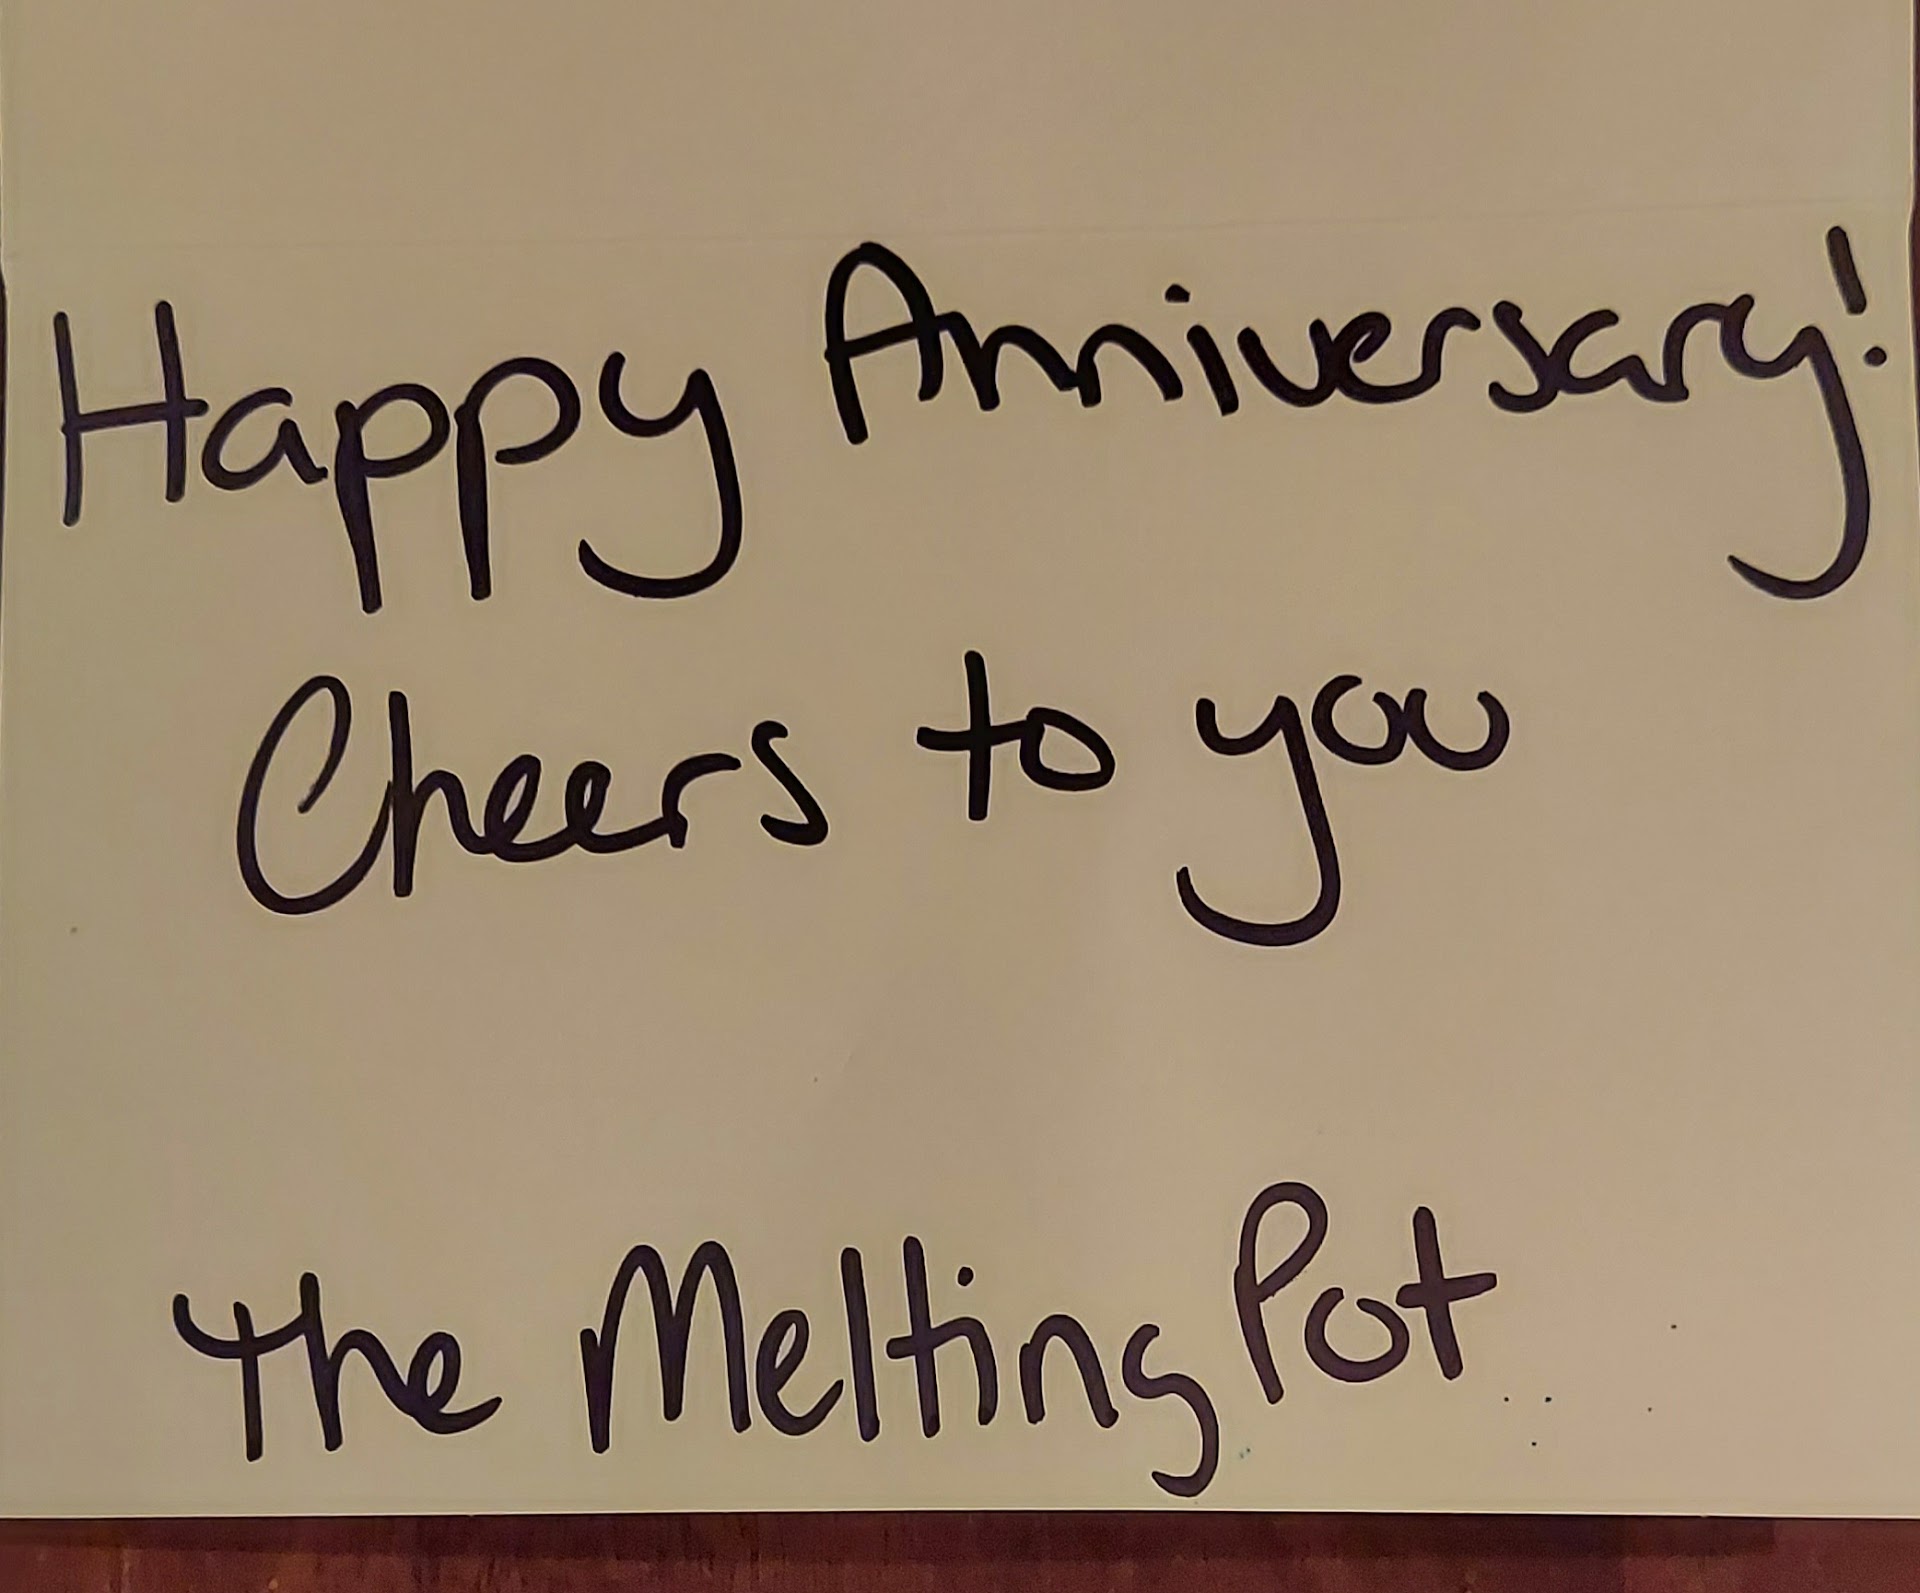 Happy Anniversary!
Cheers to you
The Melting Pot